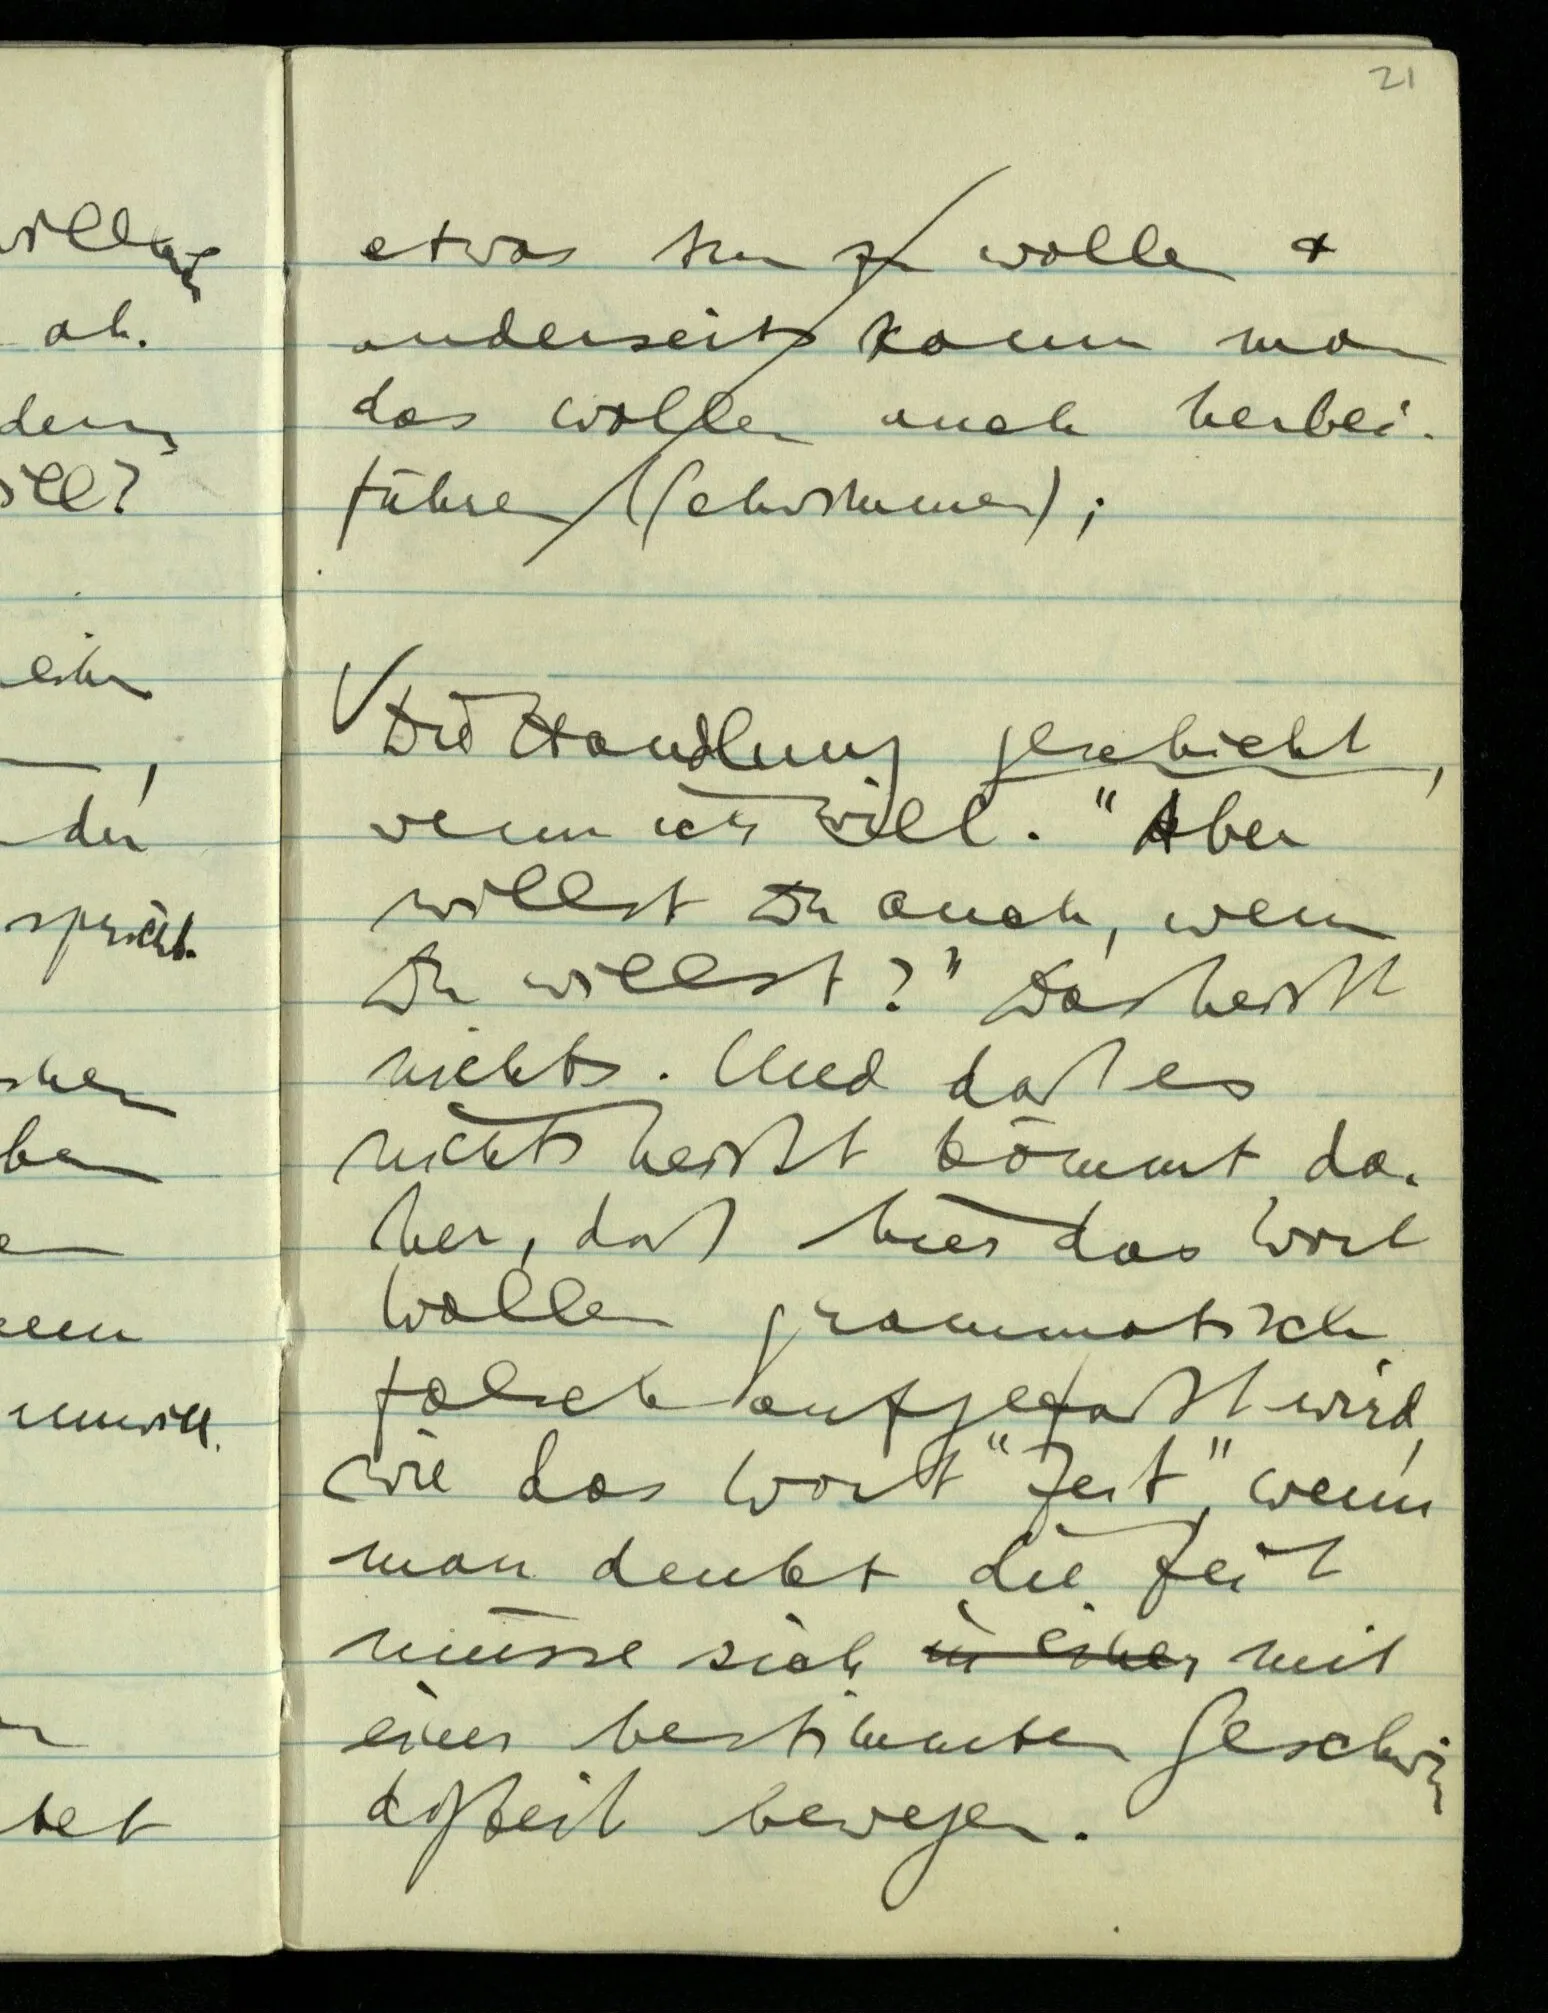 21
etwas tun zu wollen &
anderseits kann man
das Wollen auch herbei-
führen (schwimmen);
Die Handlung geschieht,
wenn ich will. "Aber
willst Du auch, wenn
Du willst?" Das heißt
nichts. Und daß es
nichts heißt kömmt da-
her, daß hier das Wort
Wollen grammatisch
falsch aufgefaßt wird,
wie das Wort "Zeit", wenn
man denkt die Zeit
müsse sich in einer mit
einer bestimmten Geschwin
digkeit bewegen.
ab.
will?
der
spricht